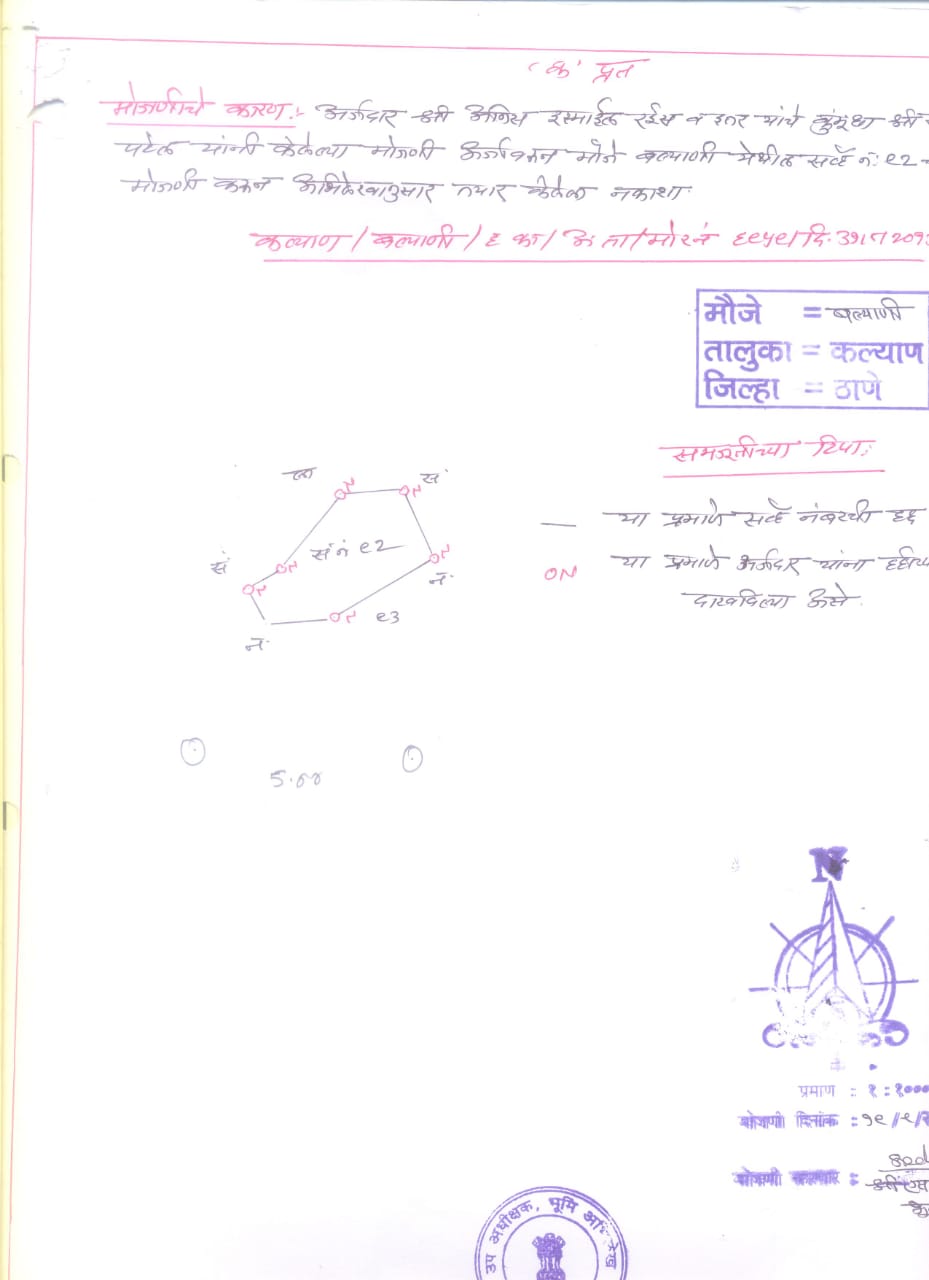 'क' प्रत
मोजणीचे कारण:- अर्जदार श्री अनिस इस्माईल रईस व इतर यांचे कुंमुखा श्री
पटेल यांनी केलेल्या मोजणी अर्जावरून मौजे बल्याणी येथील सर्व्हे नं. ९२
मोजणी करून अभिलेखानुसार तयार केलेला नकाशा.
कल्याण / बल्याणी / ह का / अ ता / मो र नं ६९५९ / दि. ३१/८/२०१
मौजे = बल्याणी
तालुका = कल्याण
जिल्हा = ठाणे
समजुतीच्या टिपा:
— या प्रमाणे सर्व्हे नंबरची हद्द
ON या प्रमाणे अर्जदार यांना हद्दीच्
दाखविल्या असे.
ब्ल स
स नं ९२
स
न.
९३
न.
5.60
N
प्रमाण : १ : १०००
मोजणी दिनांक : १९/९/२
मोजणी करणार : श्री एस
उप अधीक्षक, भूमि अभिलेख